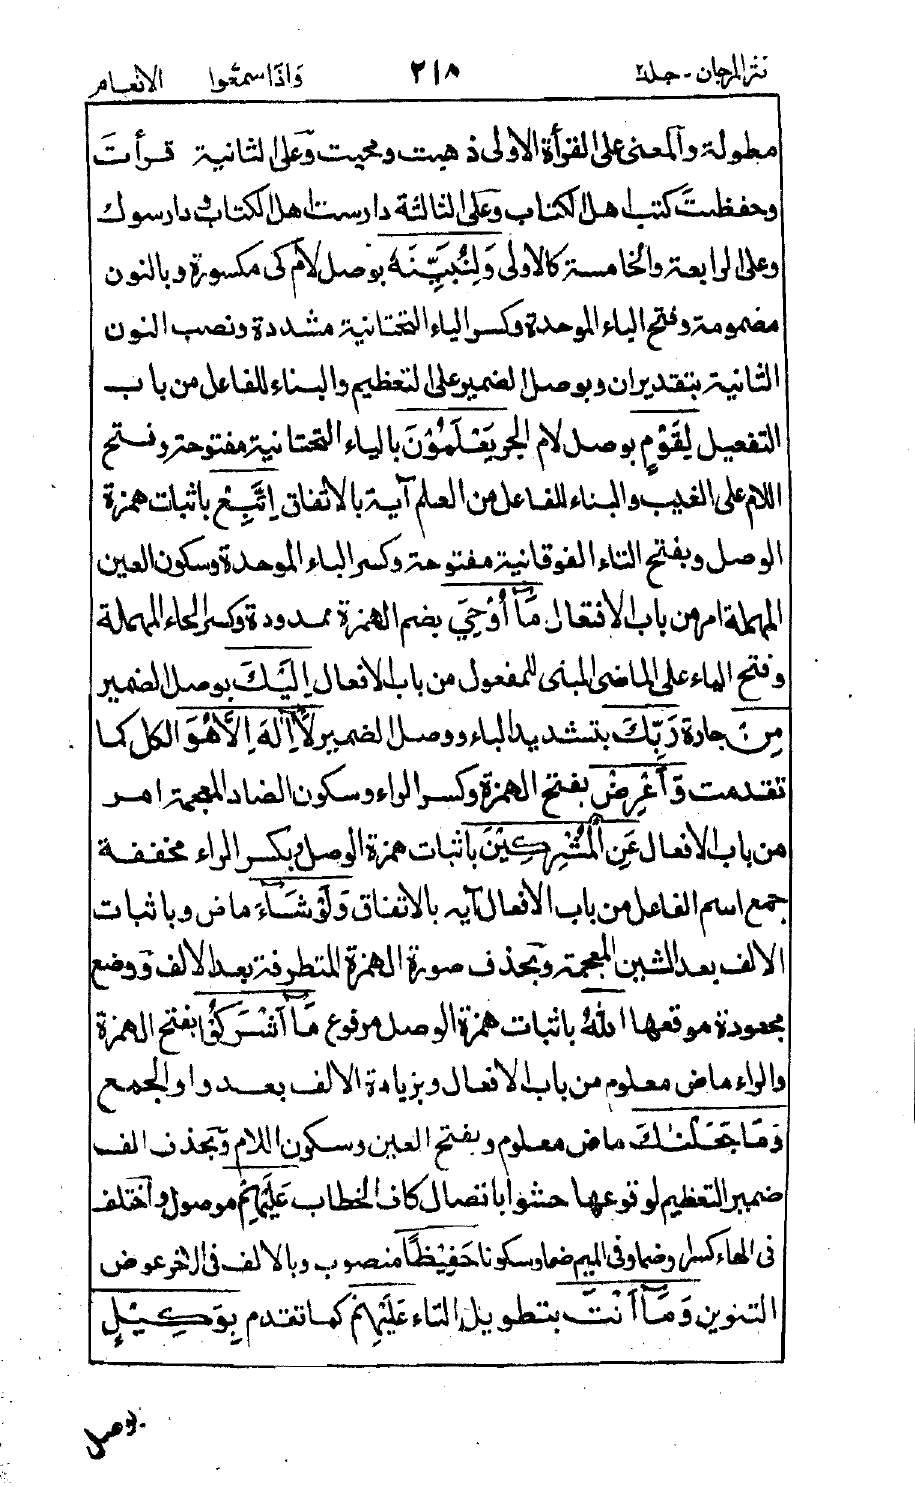 نثر المرجان - جلد٢ ٢١٨ وَاذَا سمعُوا الانعام
مطولة وٓالمعنى على القرأة الاولى ذهبت ومحيت وٓعلى الثانية قرأتَ
وحفظتَ كتب اهل الكتاب وعلى الثالثة دارست اهل الكتاب و دارسوك
وعلى الرابعة والخامسة كالاولى وَلِنُبَيِّنَهُ بوصل لام كى مكسورة وبالنون
مضمومة وفتح الباء الموحدة وكسر الياء التحتانية مشددة ونصب النون
الثانية بتقدير ان وبوصل الضمير على التعظيم والبناء للفاعل من باب
التفعيل لِقَوْمٍ بوصل لام الجر يَعْلَمُوْنَ بالياء التحتانية مفتوحة وفتح
اللام على الغيب والبناء للفاعل من العلم آية بالاتفاق اِتَّبِعْ باثبات همزة
الوصل وبفتح التاء الفوقانية مفتوحة وكسر الباء الموحدة وسكون العين
المهملة امر من باب الافتعال مَآ اُوْحِيَ بضم الهمزة ممدودة وكسر الحاء المهملة
وفتح الياء على الماضى المبنى للمفعول من باب الافعال اِلَيْكَ بوصل الضمير
مِنْ جارة رَبِّكَ بتشديد الباء ووصل الضمير لَآ اِلٰهَ اِلَّا هُوَ الكل كما
تقدمت وَاَعْرِضْ بفتح الهمزة وكسر الراء وسكون الضاد المعجمة امر
من باب الافعال عَنِ الْمُشْرِكِيْنَ باثبات همزة الوصل وبكسر الراء مخففة
جمع اسم الفاعل من باب الافعال آيه بالاتفاق وَلَوْ شَآءَ ماض وباثبات
الالف بعد الشين المعجمة وبحذف صورة الهمزة المتطرفة بعد الالف ووضع
مجعودة موقعها اللهُ باثبات همزة الوصل مرفوع مَآ اَشْرَكُوْا بفتح الهمزة
والراء ماض معلوم من باب الافعال وبزيادة الالف بعد واو الجمع
وَمَا جَعَلْنٰكَ ماض معلوم وبفتح العين وسكون اللام وبحذف الف
ضمير التعظيم لوقوعها حشوا باتصال كاف الخطاب عَلَيْهِمْ موصول واختلف
فى الهاء كسرا وضما وفى الميم ضما وسكونا حَفِيْظًا منصوب وبالالف فى الاخر عوض
التنوين وَمَآ اَنْتَ بتطويل التاء عَلَيْهِمْ كما تقدم بِوَكِيْلٍ
بوصل